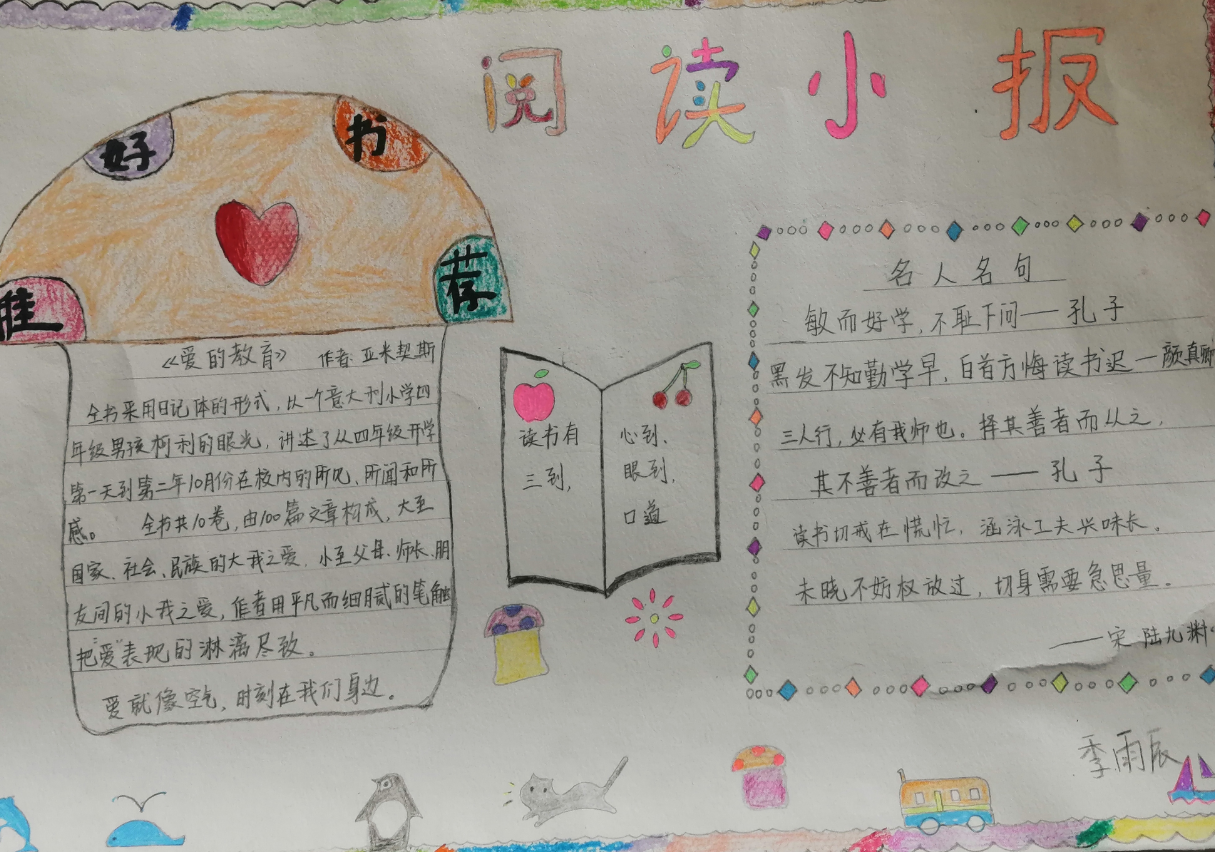 阅读小报
好书推荐
《爱的教育》 作者:亚米契斯
全书采用日记体的形式,从一个意大利小学四
年级男孩柯利的眼光,讲述了从四年级开学
第一天到第二年10月份在校内的所见、所闻和所
感。 全书共10卷,由100篇文章构成,大至
国家、社会、民族的大我之爱,小至父母、师长、朋
友间的小我之爱,作者用平凡而细腻的笔触
把“爱”表现的淋漓尽致。
爱就像空气,时刻在我们身边。
读书有
三到,
心到、
眼到,
口道
名人名句
敏而好学,不耻下问——孔子
黑发不知勤学早,白首方悔读书迟—颜真卿
三人行,必有我师也。择其善者而从之,
其不善者而改之——孔子
读书切戒在慌忙,涵泳工夫兴味长。
未晓不妨权放过,切身需要急思量。
——宋 陆九渊
季雨辰